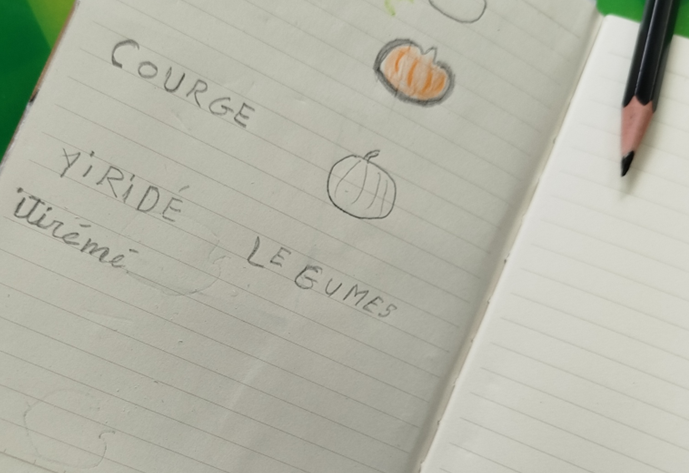 COURGE
YiRiDÉ
itirémé
LEGUMES